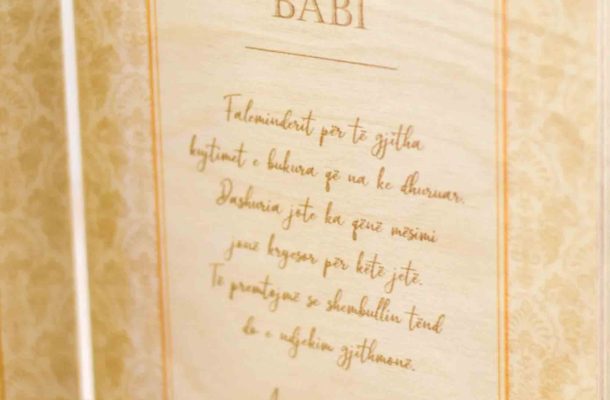 BABI
Faleminderit për të gjitha
kujtimet e bukura që na ke dhuruar.
Dashuria jote ka qënë mësimi
jonë kryesor për këtë jetë.
Të premtojmë se shembullin tënd
do e ndjekim gjithmonë.